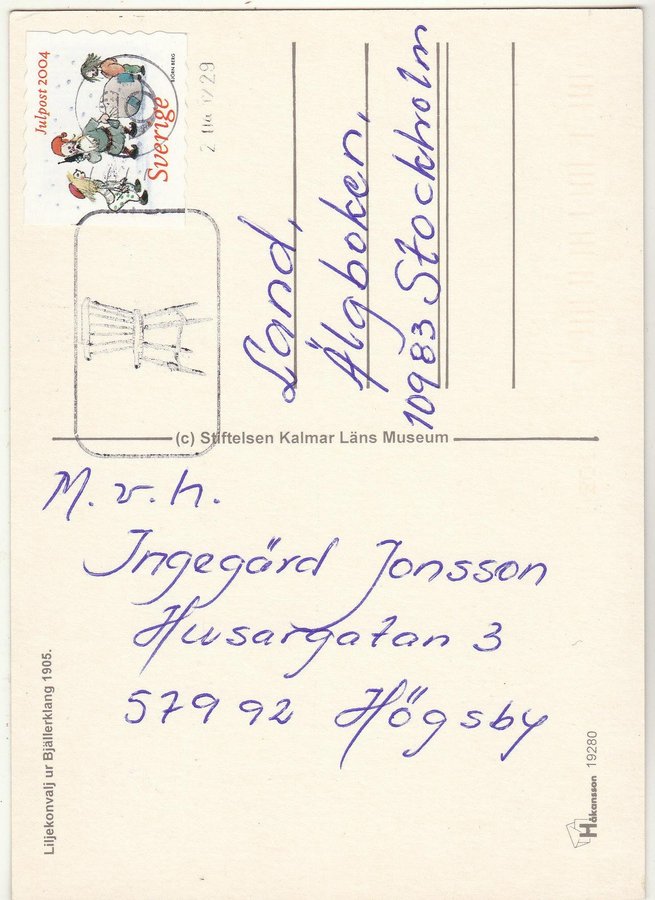 Julpost 2004
BJÖRN BERG
Sverige
Land,
Älgboken,
10983 Stockholm
(c) Stiftelsen Kalmar Läns Museum
M.v.h.
Ingegärd Jonsson
Husargatan 3
57992 Högsby
Liljekonvalj ur Bjällerklang 1905.
Håkansson 19280